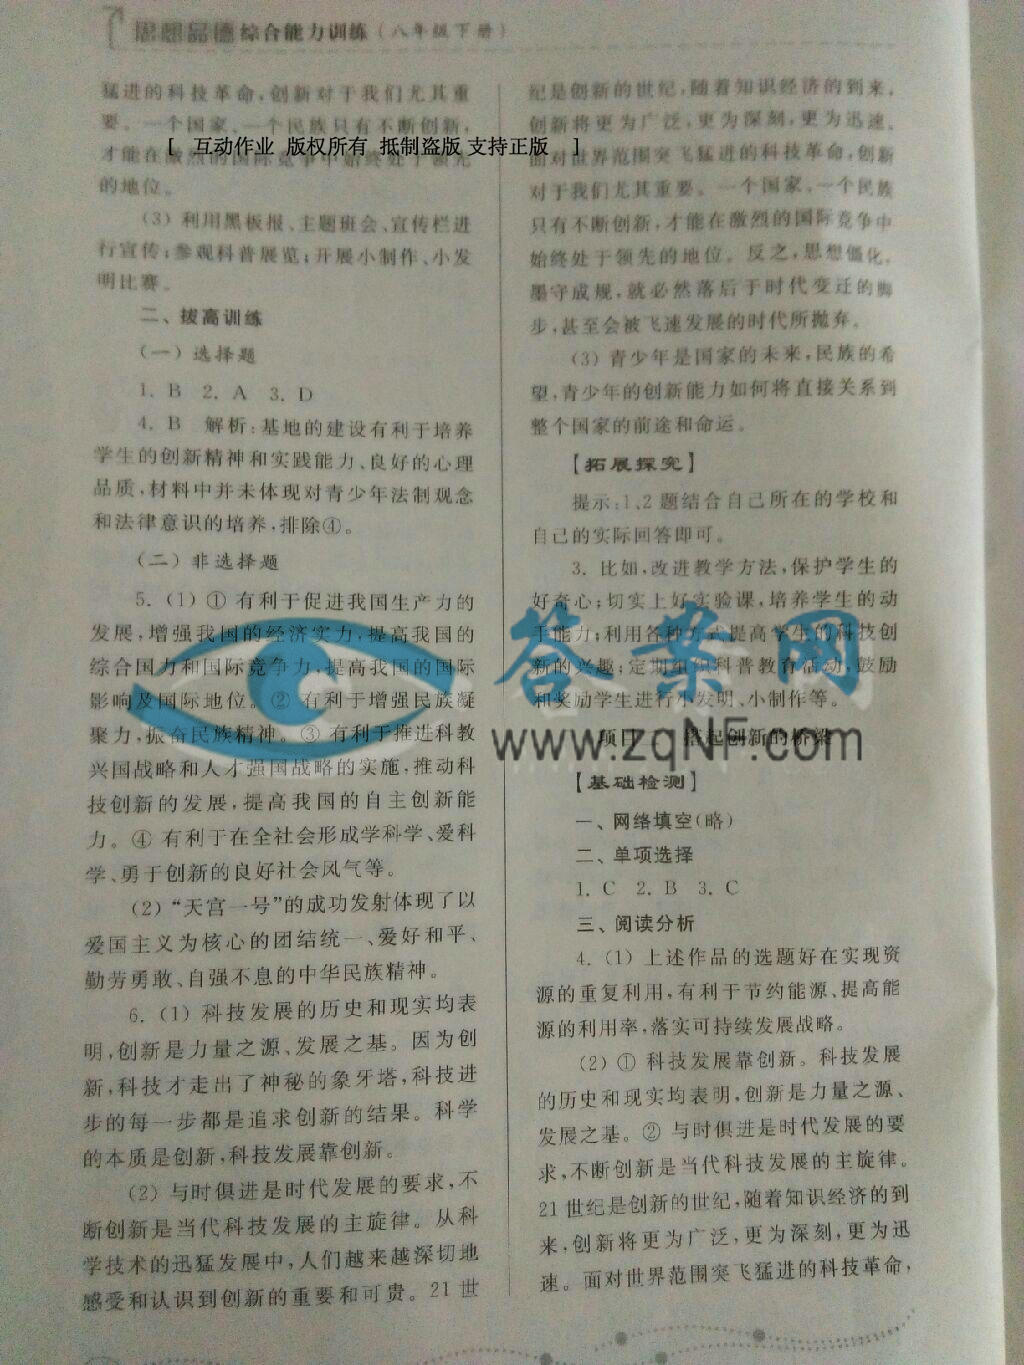 思想品德综合能力训练(八年级下册)
猛进的科技革命,创新对于我们尤其重
要。一个国家、一个民族只有不断创新,
[ 互动作业 版权所有 抵制盗版 支持正版 ]
才能在激烈的国际竞争中始终处于领先
的地位。
(3)利用黑板报、主题班会、宣传栏进
行宣传;参观科普展览;开展小制作、小发
明比赛。
二、拔高训练
(一)选择题
1. B 2. A 3. D
4. B 解析:基地的建设有利于培养
学生的创新精神和实践能力、良好的心理
品质,材料中并未体现对青少年法制观念
和法律意识的培养,排除④。
(二)非选择题
5. (1) ① 有利于促进我国生产力的
发展,增强我国的经济实力,提高我国的
综合国力和国际竞争力,提高我国的国际
影响及国际地位。② 有利于增强民族凝
聚力,振奋民族精神。③ 有利于推进科教
兴国战略和人才强国战略的实施,推动科
技创新的发展,提高我国的自主创新能
力。④ 有利于在全社会形成学科学、爱科
学、勇于创新的良好社会风气等。
(2)“天宫一号”的成功发射体现了以
爱国主义为核心的团结统一、爱好和平、
勤劳勇敢、自强不息的中华民族精神。
6. (1) 科技发展的历史和现实均表
明,创新是力量之源、发展之基。因为创
新,科技才走出了神秘的象牙塔,科技进
步的每一步都是追求创新的结果。科学
的本质是创新,科技发展靠创新。
(2) 与时俱进是时代发展的要求,不
断创新是当代科技发展的主旋律。从科
学技术的迅猛发展中,人们越来越深切地
感受和认识到创新的重要和可贵。21 世
纪是创新的世纪,随着知识经济的到来,
创新将更为广泛,更为深刻,更为迅速。
面对世界范围突飞猛进的科技革命,创新
对于我们尤其重要。一个国家、一个民族
只有不断创新,才能在激烈的国际竞争中
始终处于领先的地位。反之,思想僵化,
墨守成规,就必然落后于时代变迁的脚
步,甚至会被飞速发展的时代所抛弃。
(3) 青少年是国家的未来,民族的希
望,青少年的创新能力如何将直接关系到
整个国家的前途和命运。
【拓展探究】
提示:1、2 题结合自己所在的学校和
自己的实际回答即可。
3. 比如,改进教学方法,保护学生的
好奇心;切实上好实验课,培养学生的动
手能力;利用各种方式提高学生的科技创
新的兴趣;定期组织科普教育活动,鼓励
和奖励学生进行小发明、小制作等。
答案网
www.zqNF.com
项目 搭起创新的桥梁
【基础检测】
一、网络填空(略)
二、单项选择
1. C 2. B 3. C
三、阅读分析
4. (1) 上述作品的选题好在实现资
源的重复利用,有利于节约能源、提高能
源的利用率,落实可持续发展战略。
(2) ① 科技发展靠创新。科技发展
的历史和现实均表明,创新是力量之源、
发展之基。② 与时俱进是时代发展的要
求,不断创新是当代科技发展的主旋律。
21 世纪是创新的世纪,随着知识经济的到
来,创新将更为广泛,更为深刻,更为迅
速。面对世界范围突飞猛进的科技革命,